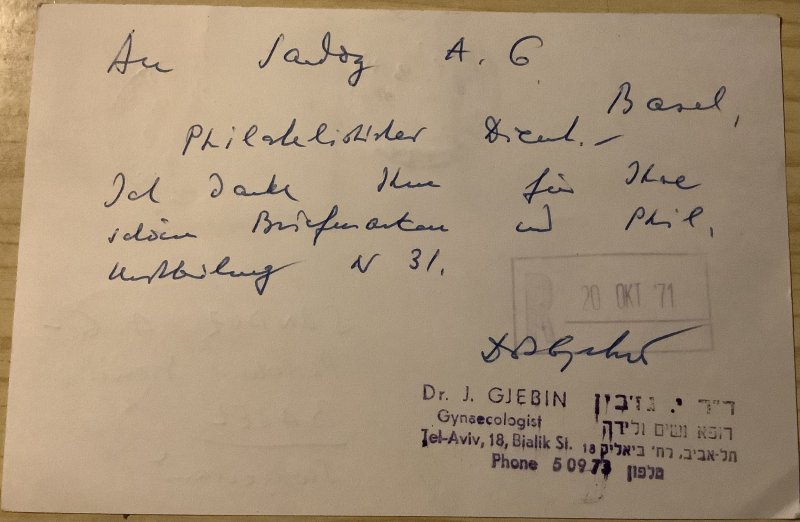 An Sandoz A. G
Basel,
Philatelistischer Dienst. –
Ich danke Ihnen für Ihre
schönen Briefmarken und Phil.
N 31.
R 20 OKT '71
Dr. J. GJEBIN
Gynaecologist
Tel-Aviv, 18, Bialik St.
Phone 5 09 73
ד"ר י. גז'בין
רופא נשים ולידה
תל-אביב, רח' ביאליק 18
טלפון